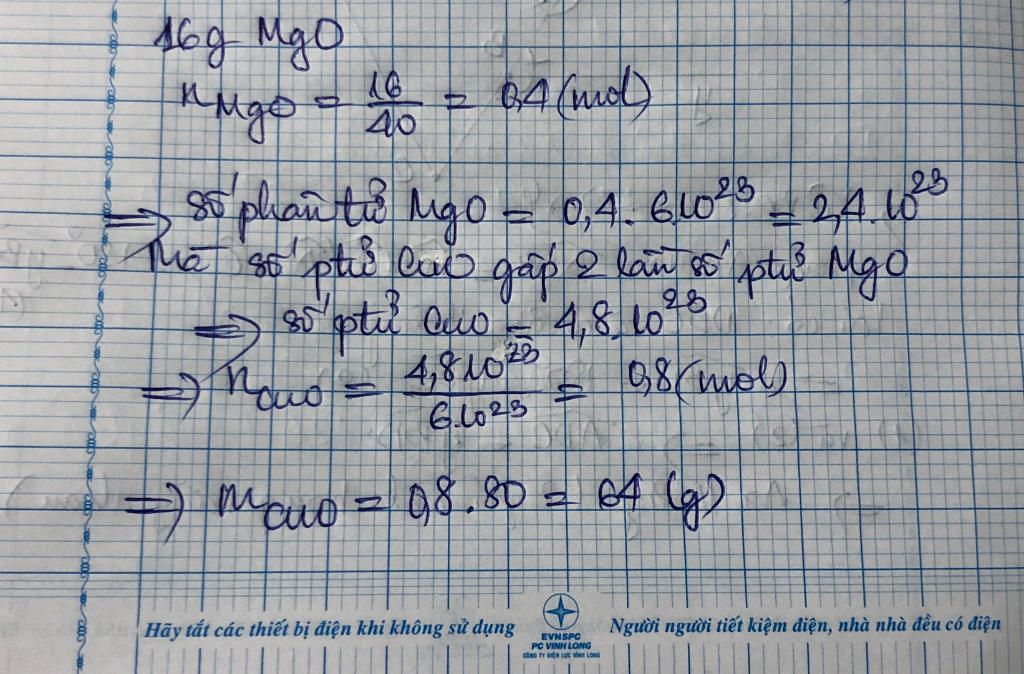 16g MgO
nMgO = 16/40 = 0,4 (mol)
=> số phân tử MgO = 0,4. 6.10^23 = 2,4.10^23
Mà số ptử CuO gấp 2 lần số ptử MgO
=> số ptử CuO = 4,8.10^23
=> nCuO = 4,8.10^23/6.10^23 = 0,8 (mol)
=> mCuO = 0,8.80 = 64 (g)
Hãy tắt các thiết bị điện khi không sử dụng
EVNSPC
PC VINH LONG
CÔNG TY ĐIỆN LỰC VĨNH LONG
Người người tiết kiệm điện, nhà nhà đều có điện